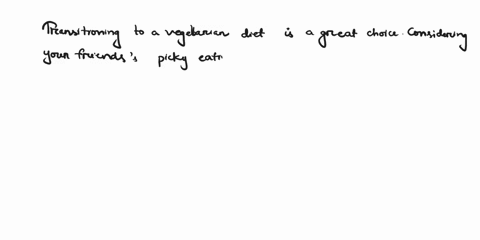 Transitioning to a vegetarian diet is a great choice. Considering
your friends's picky eatr